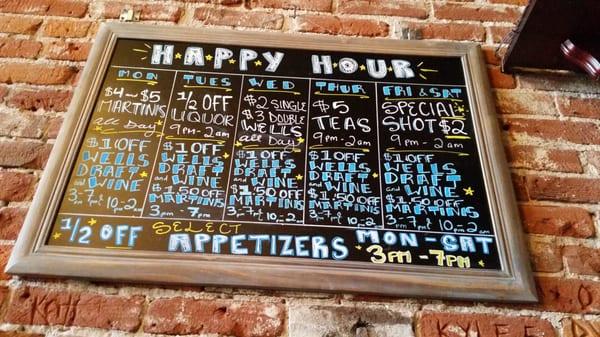 HAPPY HOUR
MON
$4 ~ $5
MARTINIS
all Day
$1 OFF
WELLS
DRAFT
and
WINE
3-7pm 10-2am
TUES
1/2 OFF
LIQUOR
9pm-2am
$1 OFF
WELLS
DRAFT
and WINE
$1.50 OFF
MARTINIS
3pm - 7pm
WED
$2 SINGLE
$3 DOUBLE
WELLS
all Day
$1 OFF
WELLS
DRAFT
and WINE
$1.50 OFF
MARTINIS
3-7pm 10-2am
THUR
$5
TEAS
9pm-2am
$1 OFF
WELLS
DRAFT
and WINE
$1.50 OFF
MARTINIS
3-7pm 10-2am
FRI & SAT
SPECIAL
SHOT $2
9pm - 2am
$1 OFF
WELLS
DRAFT
and WINE
$1.50 OFF
MARTINIS
3-7pm 10-2am
1/2 OFF SELECT APPETIZERS MON - SAT
3PM - 7PM
KYLEE